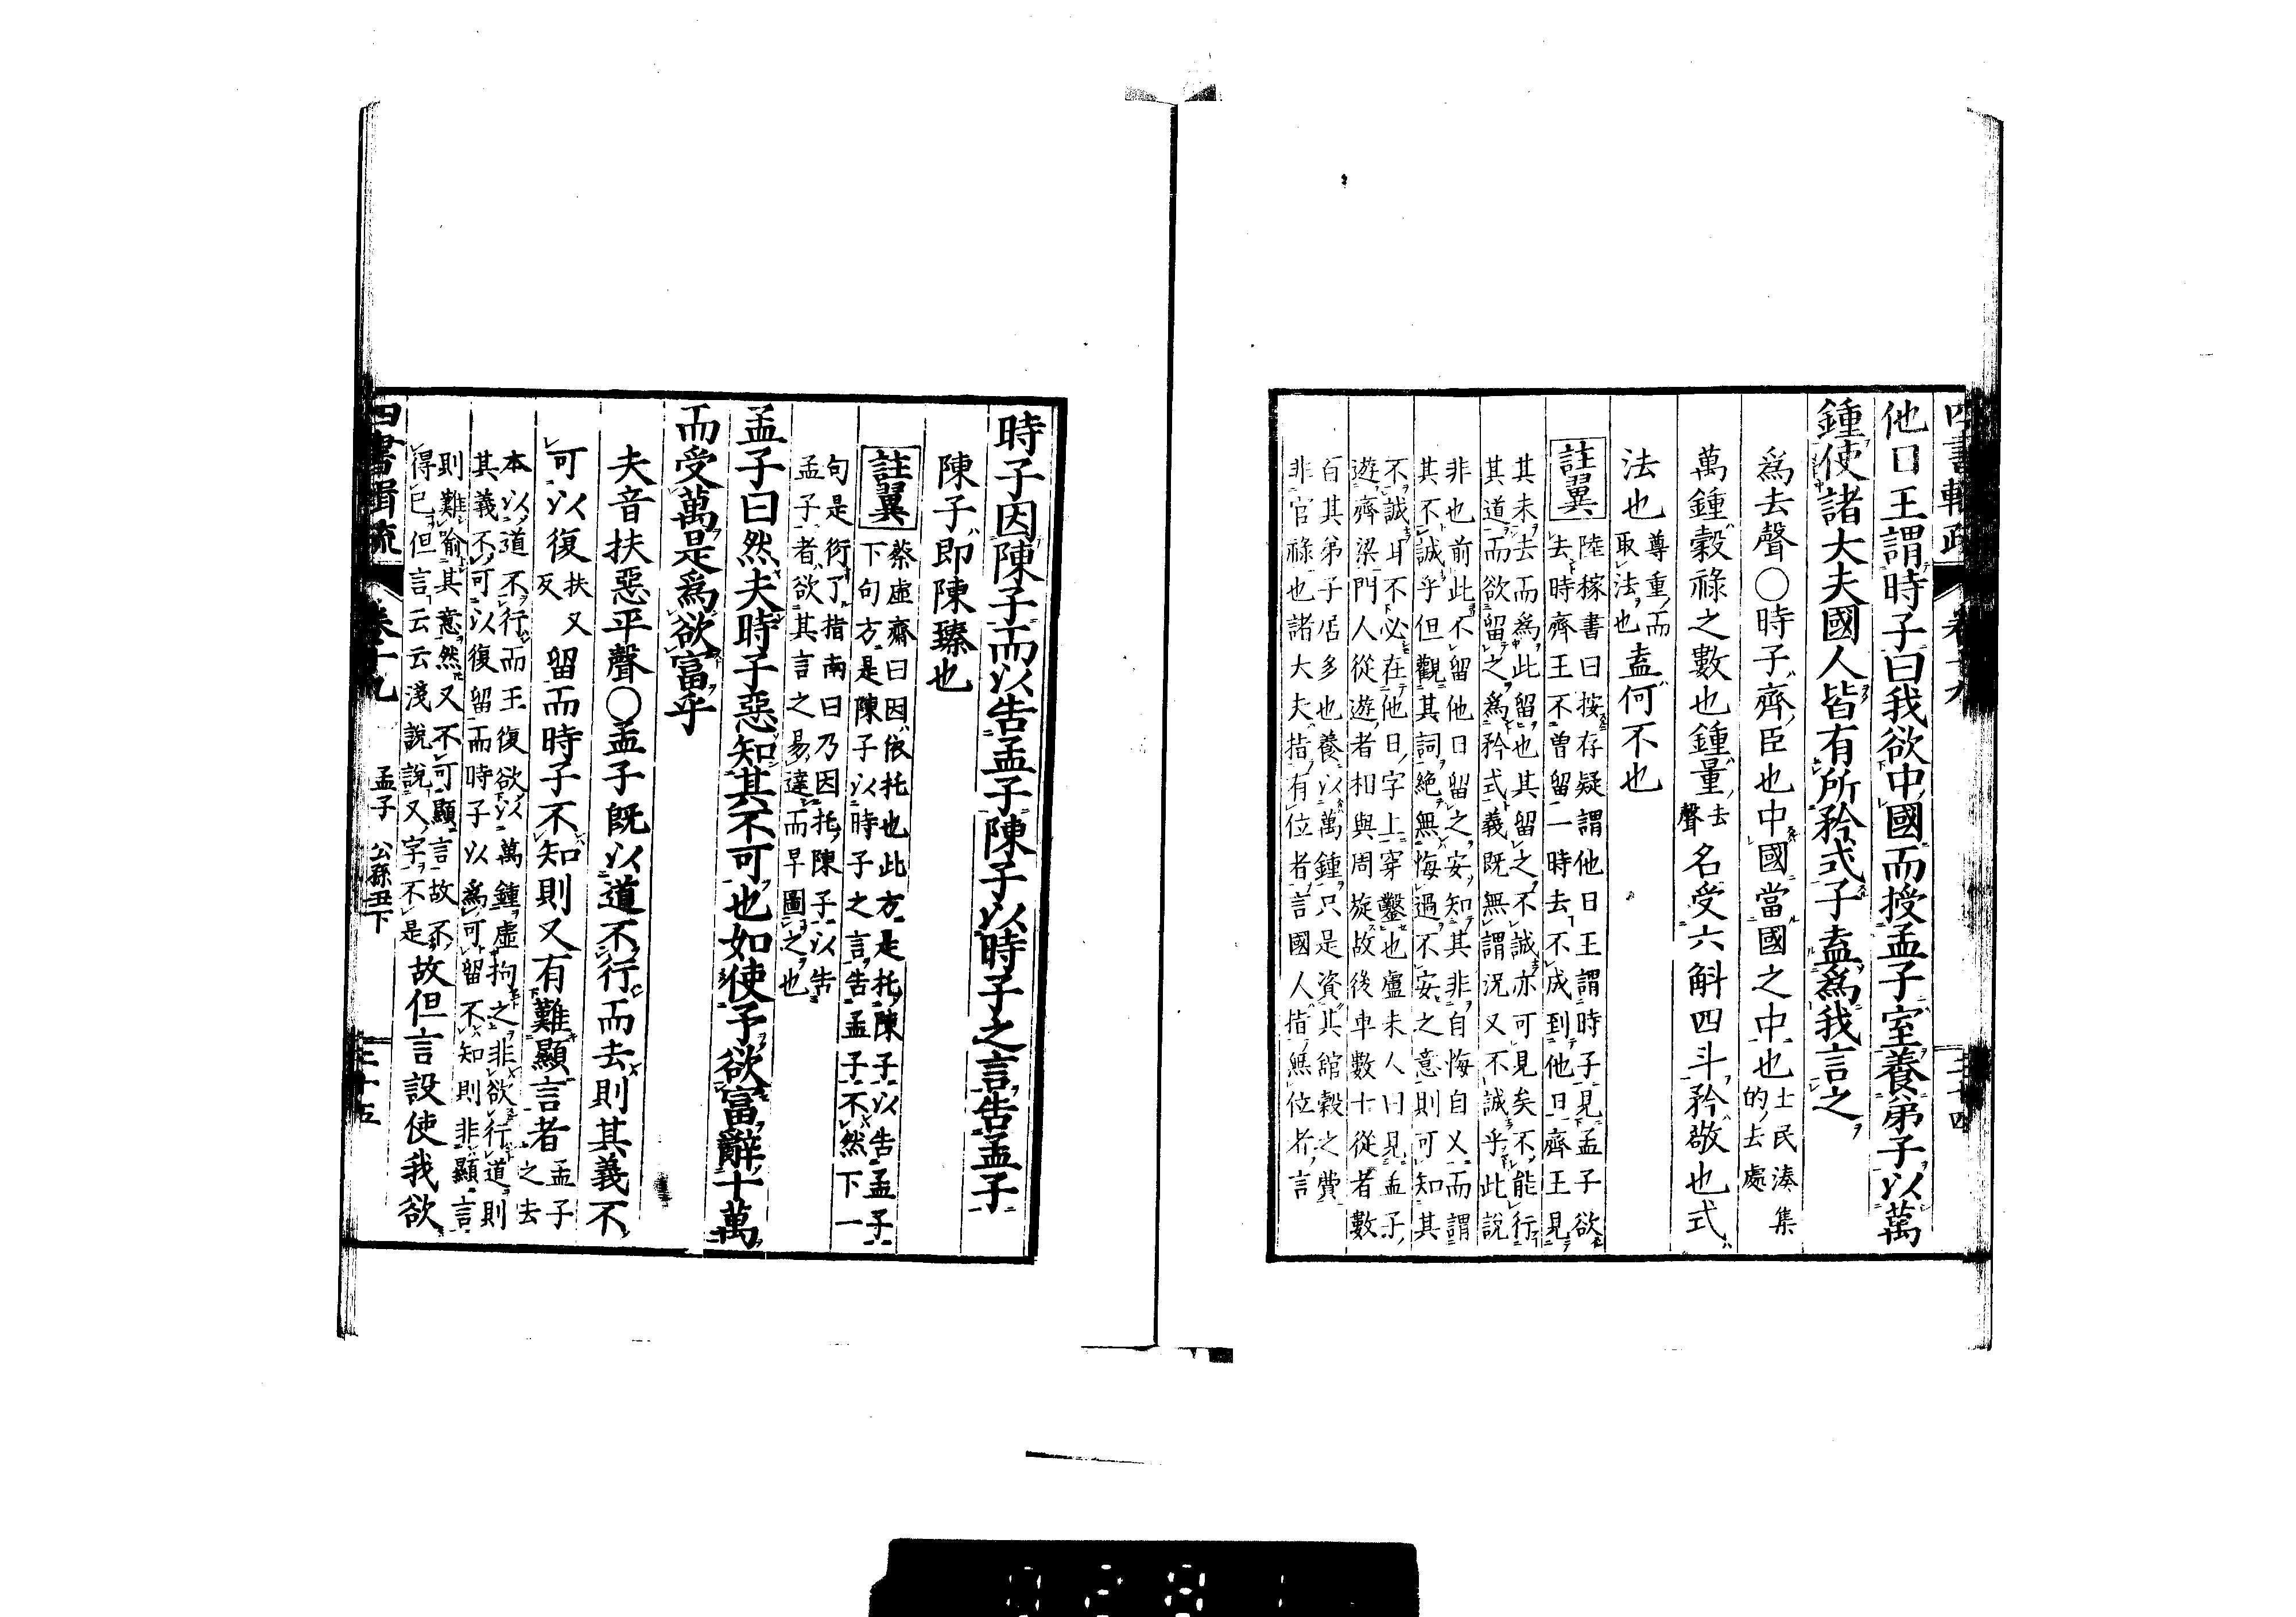 四書輯疏 卷十九 三十四
他日王謂時子曰我欲中國而授孟子室養弟子以萬
鍾使諸大夫國人皆有所矜式子盍爲我言之
爲去聲○時子齊臣也中國當國之中也士民湊集
的去處
萬鍾穀祿之數也鍾量去
聲名受六斛四斗矜敬也式
法也尊重而
取法也盍何不也
註翼
陸稼書曰按存疑謂他日王謂時子見孟子欲
去時齊王不曾留一時去不成到他日齊王見
其未去而爲此留也其留之不誠亦可見矣不能行
其道而欲留之爲矜式義既無謂況又不誠乎此說
非也前此不留他日留之安知其非自悔自乂而謂
其不誠乎但觀其詞絕無悔過不安之意則可知其
不誠耳不必在他日字上穿鑿也盧未人曰見孟子
遊齊梁門人從遊者相與周旋故後車數十從者數
百其弟子居多也養以萬鍾只是資其舘穀之費
非官祿也諸大夫指有位者言國人指無位者言
時子因陳子而以告孟子陳子以時子之言告孟子
陳子即陳臻也
註翼
蔡虛齋曰因依托也此方是托陳子以告孟子
下句方是陳子以時子之言告孟子不然下一
句是衍了指南曰乃因托陳子以告
孟子者欲其言之易達而早圖之也
孟子曰然夫時子惡知其不可也如使予欲富辭十萬
而受萬是爲欲富乎
夫音扶惡平聲○孟子既以道不行而去則其義不
可以復扶又
反留而時子不知則又有難顯言者孟子
之去
本以道不行而王復欲以萬鍾虛拘之非欲行道則
其義不可以復留而時子以爲可留不知則非顯言
則難喻其意然又不可顯言故不
得已但言云云淺說說又字不是故但言設使我欲
四書輯疏 卷十九 孟子 公孫丑下 三十五